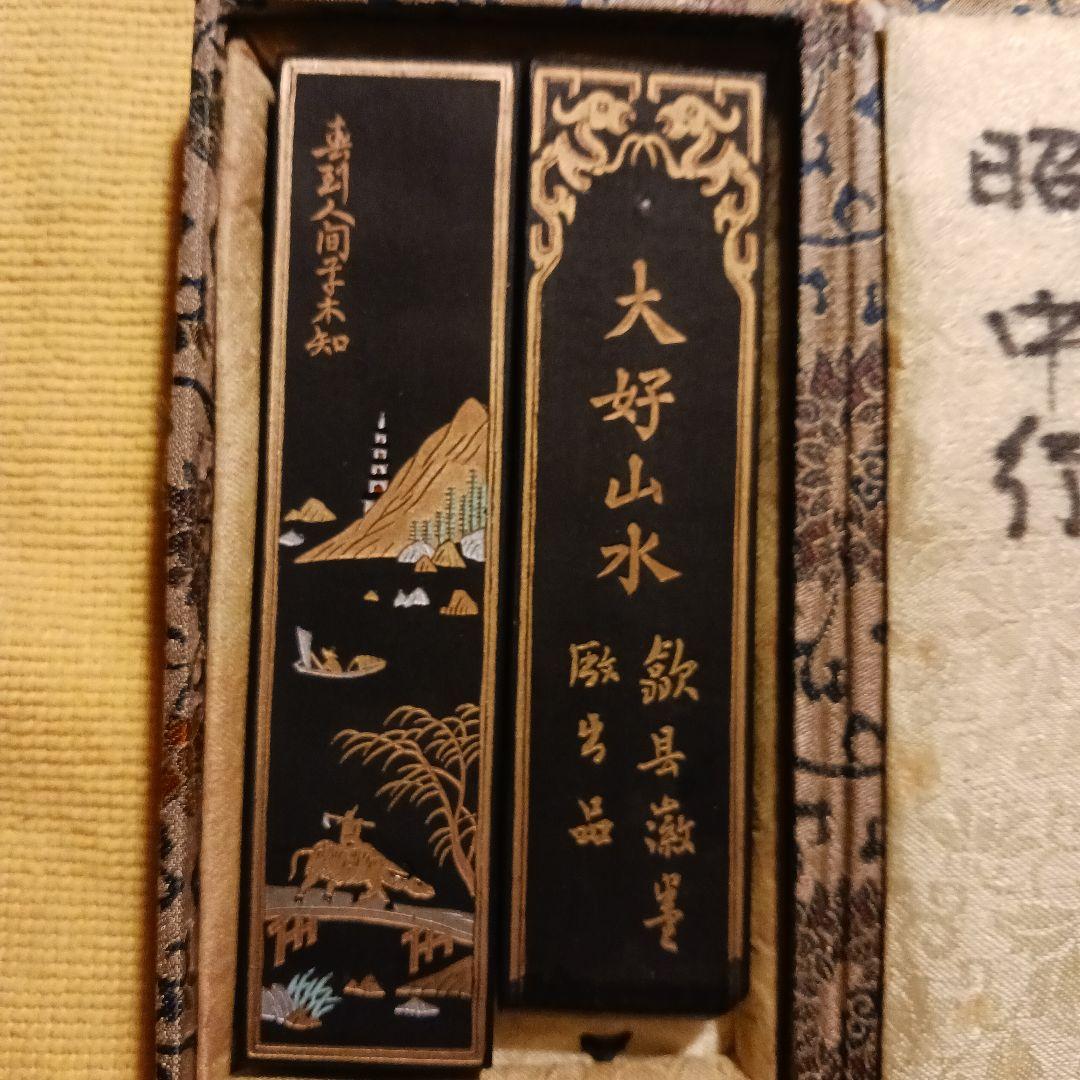 春到人间草木知
大好山水
歙县徽墨
厰出品
昭中行